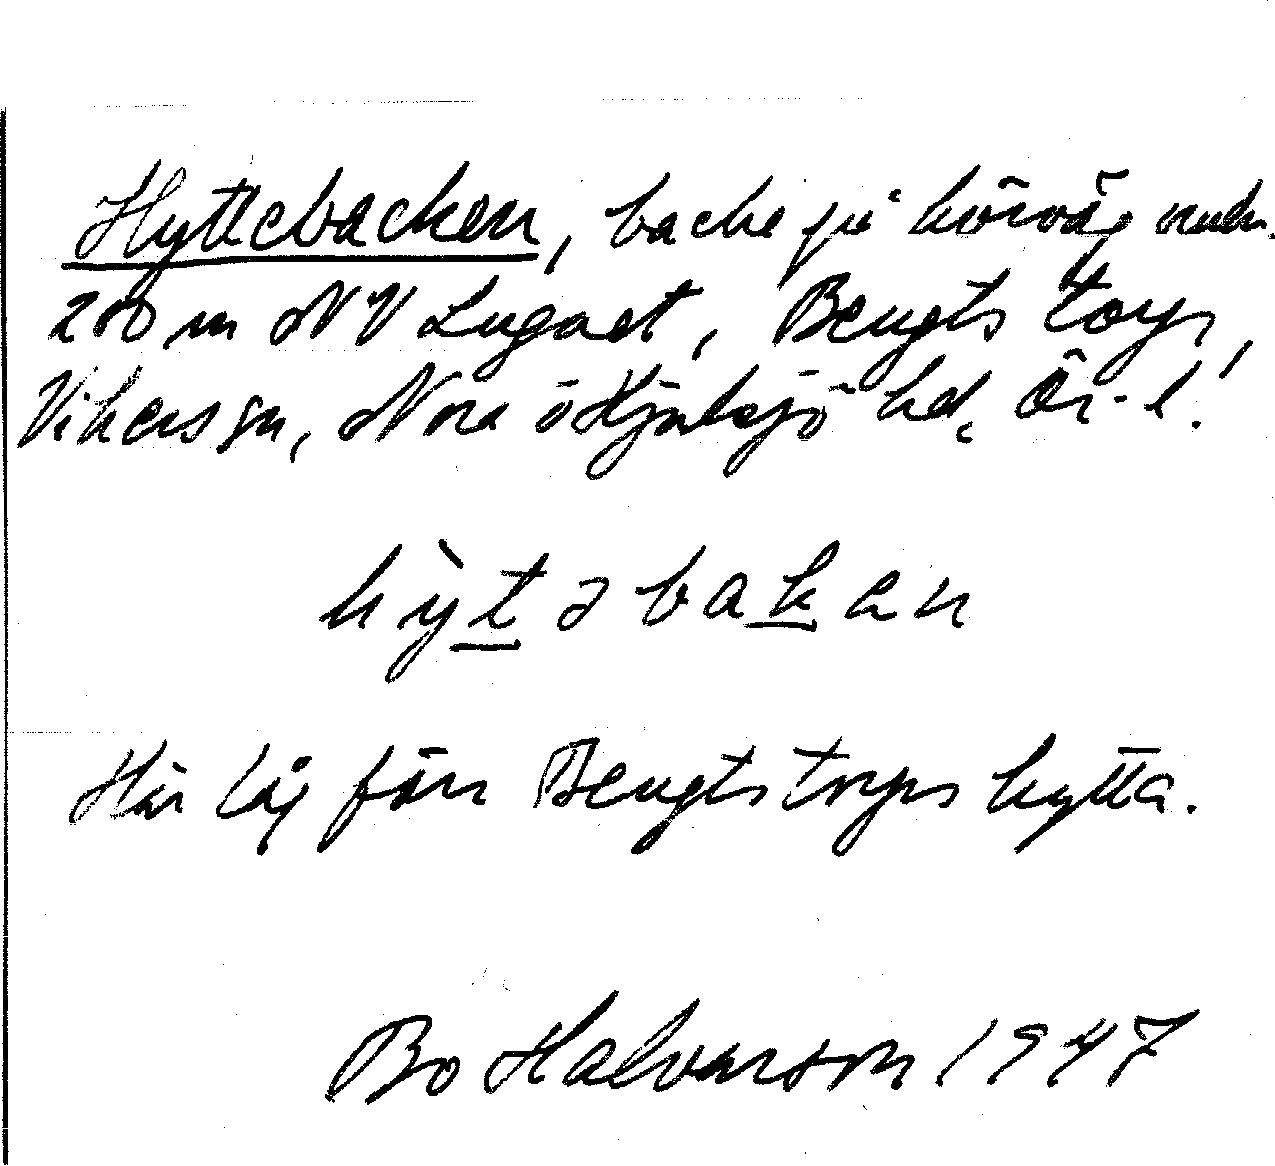 Hyttebacken, backe på körväg
200 m NV Lugnet, Bengtstorp,
Vikers sn, Nora o Hjulsjö hd, Ör-l.
hỳtəbakan
Här låg förr Bengtstorps hytta.
Bo Halvarson 1947